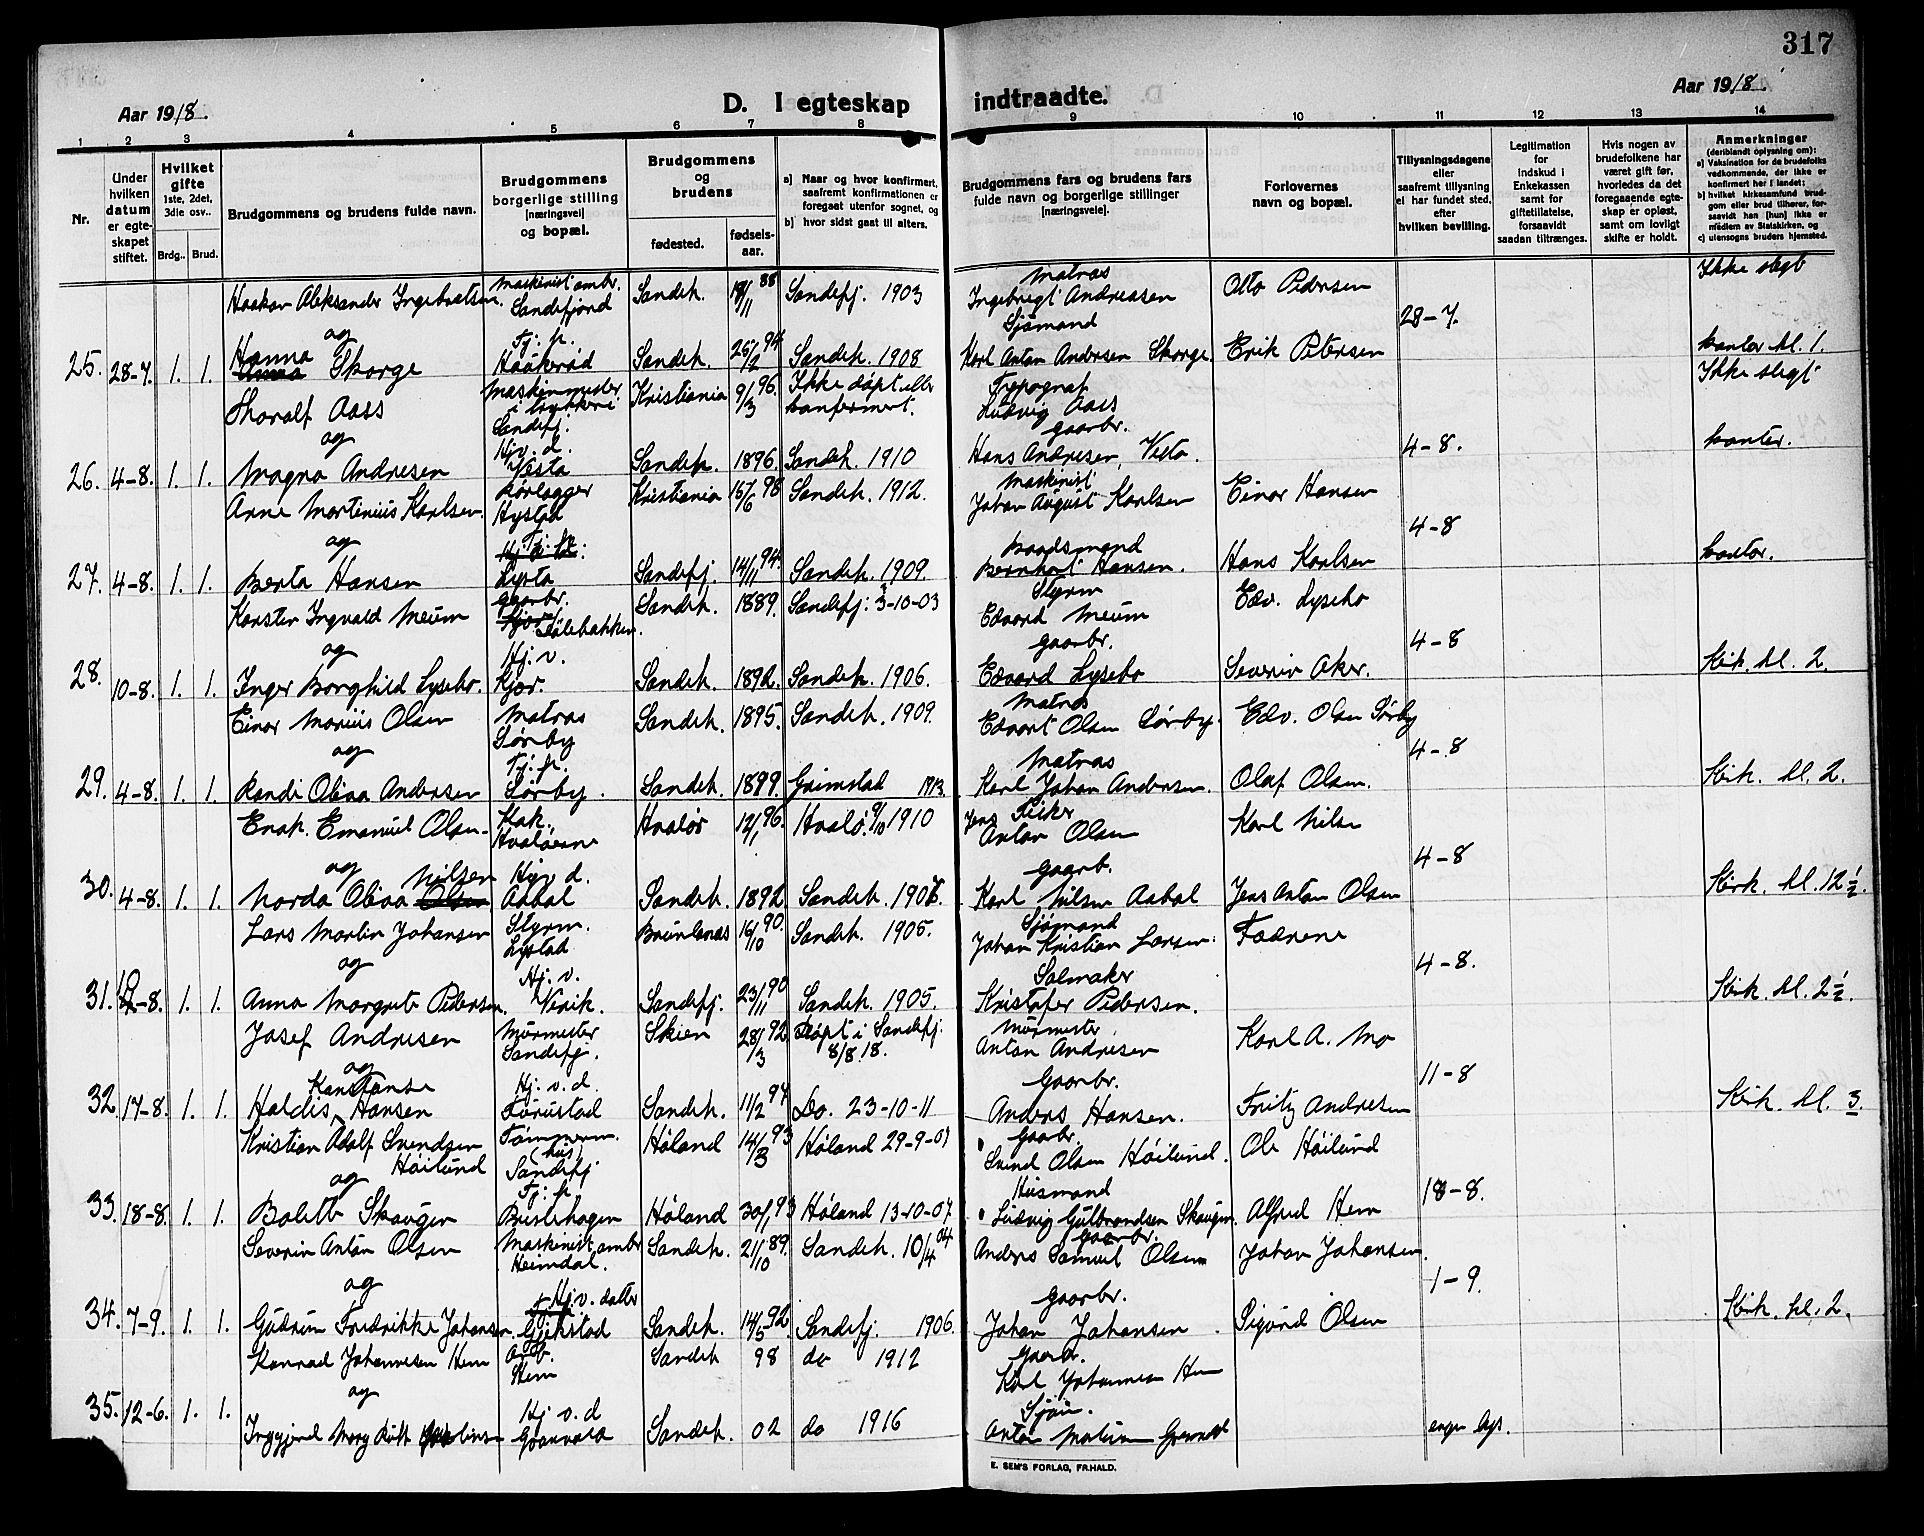 317
Aar 1918.
D. I egteskap indtraadte.
Aar 1918.
1 2 3 4 5 6 7 8 9 10 11 12 13 14
Nr.
Under hvilken datum er egteskapet stiftet.
Hvilket gifte 1ste, 2det, 3die osv..
Brdg.. Brud.
Brudgommens og brudens fulde navn.
Brudgommens borgerlige stilling [næringsvei] og bopæl.
Brudgommens og brudens
fødested. fødselsaar.
a) Naar og hvor konfirmert, saafremt konfirmationen er foregaat utenfor sognet, og
b) hvor sidst gaat til alters.
Brudgommens fars og brudens fars fulde navn og borgerlige stillinger [næringsveie].
Forlovernes navn og bopæl.
Tillysningsdagene eller saafremt tillysning ei har fundet sted, efter hvilken bevilling.
Legitimation for indskud i Enkekassen samt for giftetillatelse, forsaavidt saadan tiltrænges.
Hvis nogen av brudefolkene har været gift før, hvorledes da det foregaaende egteskap er opløst, samt om lovligt skifte er holdt.
Anmerkninger (deriblandt oplysning om):
a) Vaksination for de brudefolks vedkommende, der ikke er konfirmert her i landet;
b) hvilket kirkesamfund brudgom eller brud tilhører, forsaavidt han [hun] ikke er medlem av Statskirken, og
c) utensogns bruders hjemsted.
Haakon Aleksander Ingebretsen. Maskinist ambr. Sandefjord Sandeh. 88 Sandefj. 1903 Matros Ingebregt Andreasen Otto Pedersen Ikke slegt
og 28-7.
25. 28-7. 1. 1. Hanna Skorge Tj. p. Haukerød Sandeh. 25/2 94. Sandeh. 1908 Sjømand Karl Anton Andersen Skorge. Erik Petersen kontor kl. 1.
Thoralf Aass Maskinmester i trykkeri Sandefj. Kristiania 9/3 96. Ikke døpt eller konfirmert. Typograf Ludvig Aass Ikke slegt
og 4-8.
26. 4-8. 1. 1. Magna Andresen Hj. v. d. Vesta Sandeh. 1896. Sandeh. 1910 gaarbr. Hans Andresen, Vesta. kontor.
Arne Martinius Karlsen. Rørlægger Hystad Kristiania 15/6 98 Sandeh. 1912. Maskinist Johan August Karlsen Einar Hansen
og 4-8
27. 4-8. 1. 1. Berta Hansen Tj. p. Sandefj. 14/11 94. Sandeh. 1909. Baadsmand Bernhart Hansen. Hans Karlsen kontor.
Karsten Ingvald Meum gaarbr. Sandeh. 1889. Sandefj: 3-10-03 Styrm Edvard Meum Edv. Lysebo
og 4-8
28. 10-8. 1. 1. Inger Borghild Lysebo. Hj. v. Kjær. Sandeh. 1892. Sandeh. 1906. gaarbr. Edvard Lysebo Severin Aker. Kirk. kl. 2
Einar Marius Olsen Matros Sørby Sandeh. 1895. Sandeh. 1909. Matros Edvart Olsen Sørby. Edv. Olsen Sørby
og 4-8
29. 4-8. 1. 1. Randi Olivia Andersen Tj. p. Sørby. Sandeh. 1899. Grimstad 1913. Matros Karl Johan Andersen. Olaf Olsen. Kirk. kl. 2.
Enok. Emanuel Olsen. Kok. Hvaløerne Hvaløer 12/1 96. Hvalø. 9/10 1910 Fisker Jens Anton Olsen Karl Nilsen
og 4-8
30. 4-8. 1. 1. Norda Olivia Nilsen Hj. v. d. Aabol Sandeh. 1892. Sandeh. 1907. gaarb. Karl Nilsen Aabol Jens Anton Olsen Kirk. kl. 12 ½.
Lars Martin Johansen Styrm. Lystad Brunlanes 16/10 90. Sandeh. 1905. Sjømand Johan Kristian Larsen. Fædrene
og 4-8.
31. -8. 1. 1. Anna Margrete Pedersen. Hj. v. Virik. Sandefj. 23/11 90 Sandeh. 1905. Salmaker Kristofer Pedersen. Kirk. kl. 2 ½.
Josef Andresen Murmester Sandefj. Skien 28/3 92. Døpt i Sandefj. 8/8.18. Murmester Anton Andresen Karl A. Mo
og 11-8
32. 17-8. 1. 1. Haldis Konstanse Hansen Hj. v. d. Furustad Sandeh. 11/2 97 Do. 23-10-11 Gaarbr. Anders Hansen. Fritz Andresen Kirk. kl. 3.
Kristian Adolf Svendsen Høilund Tømmerm. (hus) Sandefj Høland 14/3 93 Høland 29-9-07 Gaarbr. Svend Olsen Høilund. Ole Høilund
og 18-8.
33. 18-8. 1. 1. Bolette Skaugen Tj. p. Høland 30/1 93 Høland 13-10-07 Husmand Ludvig Gulbrandsen Skaugen. Alfred Hem
Severin Anton Olsen Maskinist ambr Heimdal. Sandeh. 21/10 89. Sandeh. 10/4 04 gaarbr. Anders Samuel Olsen Johan Johansen.
og 1-9.
34. 7-9. 1. 1. Gudrun Fredrikke Johansen Hj. v. datter Gjekstad Sandeh. 14/5 92. Sandefj. 1906. gaarbr. Johan Johansen. Sigurd Olsen Kirk. kl. 2.
Konrad Johannesen Hem Arb. Hem Sandeh 98 do 1912 Gaarbr. Karl Johannesen Hem
og
35. 12-6. 1. 1. Hj v. d Sandeh. 02 do 1916 Sjøm. Anton
E. SEM'S FORLAG, FR.HALD.